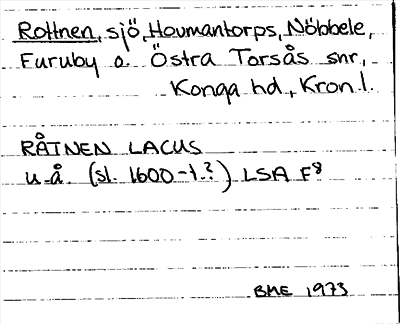 Rottnen, sjö, Hovmantorps, Nöbbele,
Furuby o. Östra Torsås snr,
Konga hd., Kron.l.
RÅTNEN LACUS
u.å. (sl. 1600-t.?) LSA F8
BME 1973